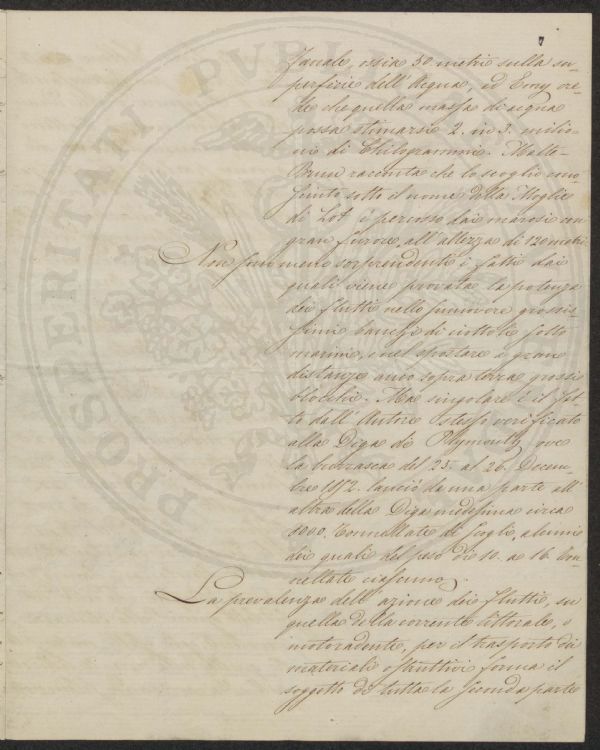 7
fanale, ossia 50 metri sulla su-
perficie dell'Acqua, ed Emy cre-
de che quella massa di acqua
possa stimarsi 2. in 3. milio-
ni di Chilogrammi. Malte-
Brun racconta che lo scoglio cono-
sciuto sotto il nome della Moglie
di Lot è percosso dai marosi con
gran furore, all'altezza di 120 metri.
Non sono meno sorprendenti i fatti dai
quali viene provata la potenza
dei flutti nello smuovere grossis-
simi banchi di ciottoli sotto
marini, e nel spostare a gran
distanze anco sopra terra grossi
blocchi. Ma singolare è il fat-
to dall'Autore stesso verificato
alla Diga di Plymouth, ove
la burrasca del 25. al 26. Decem-
bre 1872. lanciò da una parte all'
altra della Diga medesima circa
8000. Tonnellate di scogli, alcuni
dei quali del peso di 10. a 16. ton-
nellate ciascuno.
La prevalenza dell'azione dei flutti, su
quella della corrente littorale, o
motoradente, per il trasporto di
materiali ostruttivi forma il
soggetto di tutta la seconda parte
PROSPERITATI PUBLI